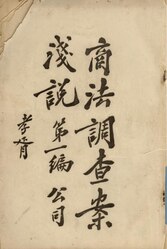 商法調查案
淺說 第一編 公司
孝胥